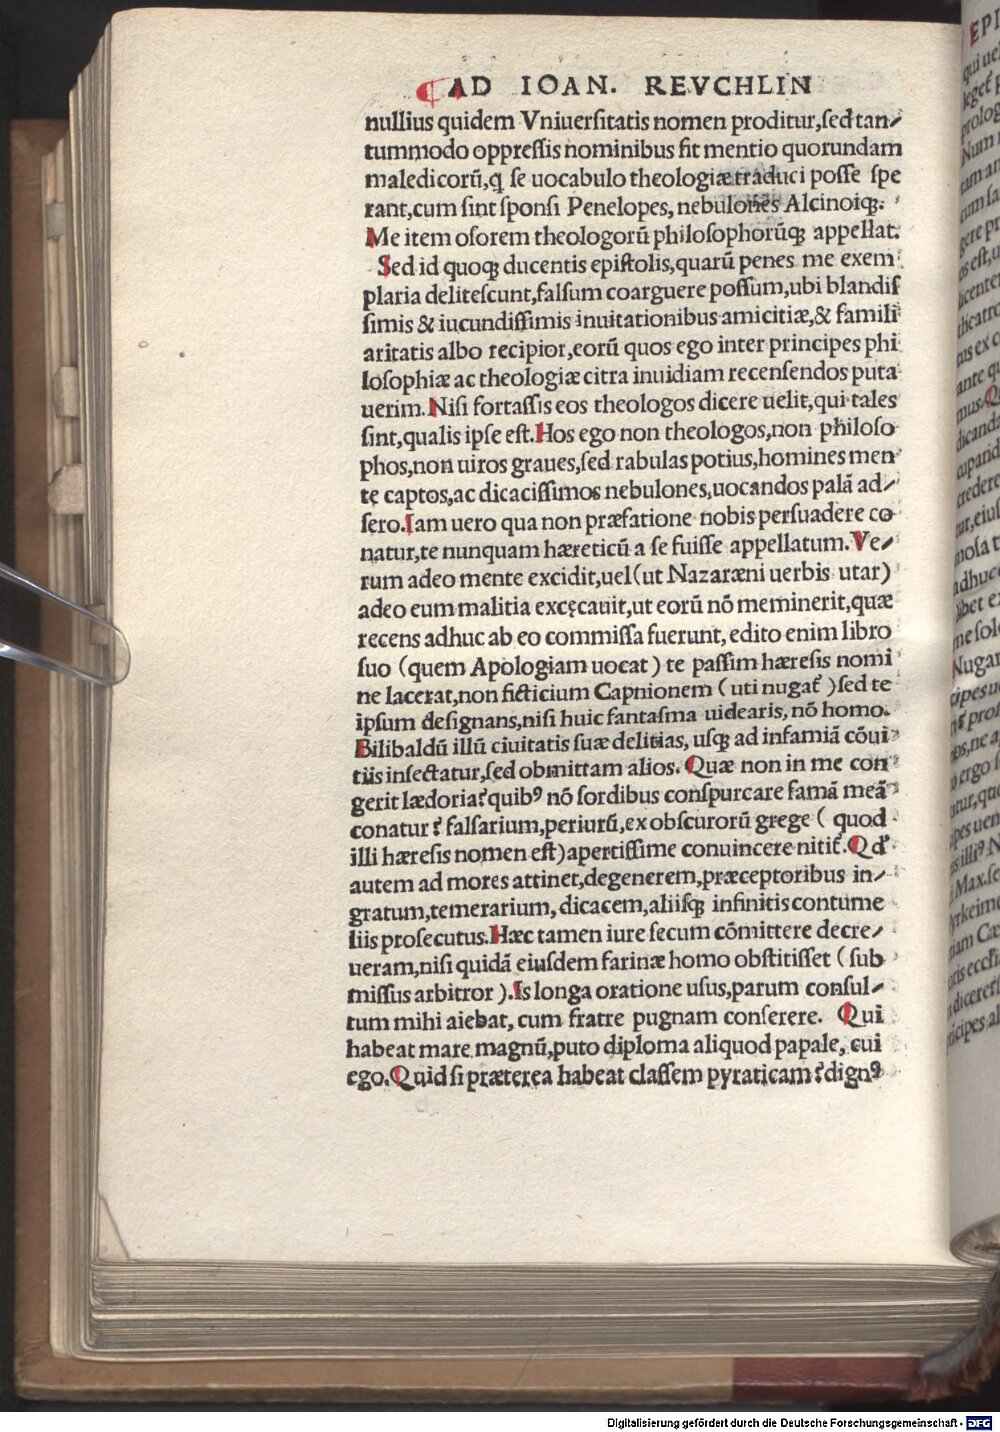 ¶AD IOAN. REVCHLIN
nullius quidem Vniuersitatis nomen proditur,sed tan⸗
tummodo oppressis nominibus fit mentio quorundam
maledicorũ,q se uocabulo theologiæ traduci posse spe
rant,cum sint sponsi Penelopes, nebulones Alcinoiqꝫ.
Me item osorem theologorũ philosophorũqꝫ appellat.
Sed id quoqꝫ ducentis epistolis,quarũ penes me exem
plaria delitescunt,falsum coarguere possum,ubi blandis
simis & iucundissimis inuitationibus amicitiæ,& famili
aritatis albo recipior,eorũ quos ego inter principes phi
losophiæ ac theologiæ citra inuidiam recensendos puta
uerim.Nisi fortassis eos theologos dicere uelit,qui tales
sint,qualis ipse est.Hos ego non theologos,non philoso
phos,non uiros graues,sed rabulas potius,homines men
te captos,ac dicacissimos nebulones,uocandos palã ad⸗
sero.Iam uero qua non præfatione nobis persuadere co
natur,te nunquam hæreticũ a se fuisse appellatum.Ve⸗
rum adeo mente excidit,uel(ut Nazaræni uerbis utar)
adeo eum malitia excęcauit,ut eorũ nõ meminerit,quæ
recens adhuc ab eo commissa fuerunt, edito enim libro
suo (quem Apologiam uocat) te passim hæresis nomi
ne lacerat,non ficticium Capnionem (uti nugat᷑ )sed te
ipsum designans,nisi huic fantasma uidearis, nõ homo.
Bilibaldũ illũ ciuitatis suæ delitias, usqꝫ ad infamiã cõui
tiis insectatur,sed obmittam alios. Quæ non in me con
gerit lædoria?quibꝰ nõ sordibus conspurcare famã meã
conatur? falsarium,periurũ,ex obscurorũ grege ( quod
illi hæresis nomen est)apertissime conuincere nitit᷑.Qd᷑
autem ad mores attinet,degenerem,præceptoribus in⸗
gratum,temerarium, dicacem,aliisqꝫ infinitis contume
liis prosecutus.Hæc tamen iure secum cõmittere decre⸗
ueram,nisi quidã eiusdem farinæ homo obstitisset ( sub
missus arbitror ).Is longa oratione usus,parum consul⸗
tum mihi aiebat, cum fratre pugnam conserere. Qui
habeat mare magnũ,puto diploma aliquod papale, cui
ego.Quid si præterea habeat classem pyraticam?dignꝰ
Digitalisierung gefördert durch die Deutsche Forschungsgemeinschaft - DFG